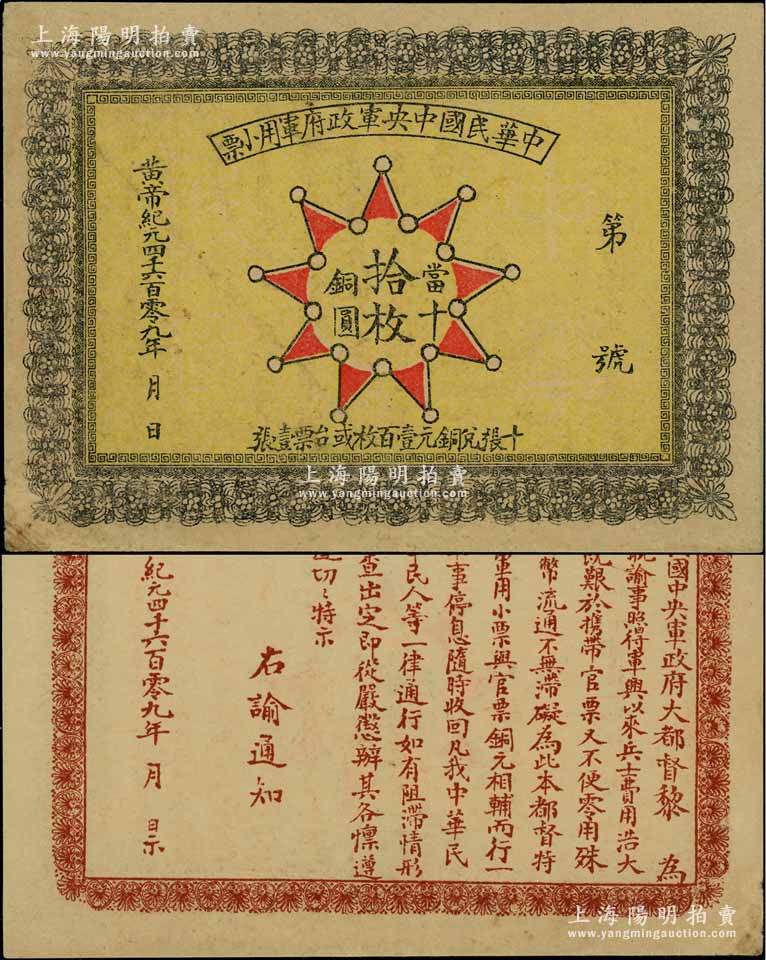 上海陽明拍賣
www.yangmingauction.com
中華民國中央軍政府軍用小票
第 號
當十
拾枚
銅圓
黃帝紀元四千六百零九年 月 日
十張兌銅元壹百枚或台票壹張
上海陽明拍賣
www.yangmingauction.com
國中央軍政府大都督黎 為
諭事照得軍興以來兵士費用浩大
既艱於攜帶官票又不便零用殊
幣流通不無滯礙為此本都督特
軍用小票與官票銅元相輔而行一
事停息隨時收回凡我中華民
民人等一律通行如有阻滯情形
查出定即從嚴懲辦其各懍遵
切切特示
右諭通知
紀元四千六百零九年 月 日示
上海陽明拍賣
www.yangmingauction.com